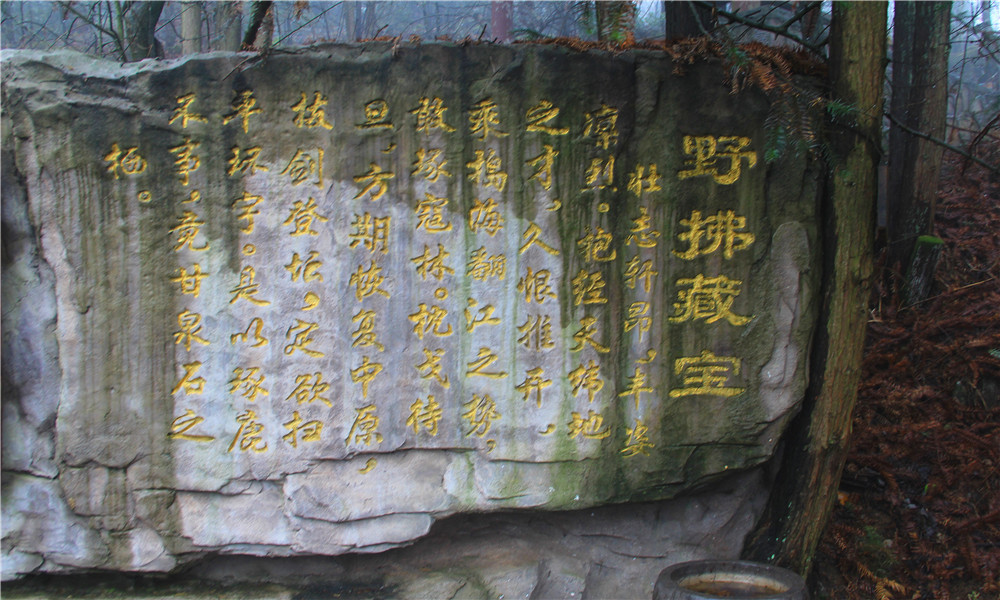 野拂藏宝
壮志轩昂，丰姿
凛烈。抱经天纬地
之才，久恨推开，
乘捣海翻江之势，
敢琢寇林。枕戈待
旦，方期恢复中原，
拔剑登坛，定欲扫
平环宇。是以琢鹿
不事，竟甘泉石之
栖。